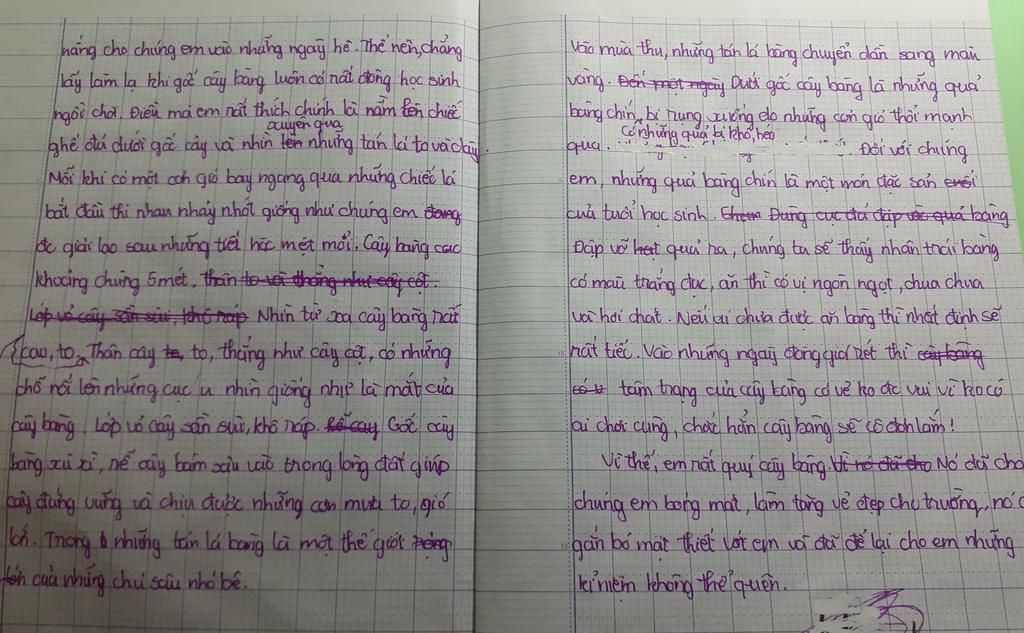 nắng cho chúng em vào những ngày hè. Thế nên, chẳng
lấy làm lạ khi gốc cây bàng luôn có rất đông học sinh
ngồi chơi. Điều mà em rất thích chính là nằm lên chiếc
xuyên qua
ghế đá dưới gốc cây và nhìn lên những tán lá to và dày.
Mỗi khi có một cơn gió bay ngang qua những chiếc lá
bắt đầu thi nhau nhảy nhót giống như chúng em đang
đc giải lao sau những tiết học mệt mỏi. Cây bàng cao
khoảng chừng 5 mét, thân to và thẳng như cây cột.
Lớp vỏ cây sần sùi, khô ráp Nhìn từ xa cây bàng rất
cao, to. Thân cây to, to, thẳng như cây cột, có những
chỗ nổi lên những cục u nhìn giống như là mắt của
cây bàng. Lớp vỏ cây sần sùi, khô ráp. Rễ cây Gốc cây
bàng xù xì, rễ cây bám sâu vào trong lòng đất giúp
cây đứng vững và chịu được những cơn mưa to, gió
lớn. Trong những tán lá bàng là một thế giới
của những chú sâu nhỏ bé.
Vào mùa thu, những tán lá bàng chuyển dần sang màu
vàng. Đến một ngày Dưới gốc cây bàng là những quả
bàng chín, bị rụng xuống do những cơn gió thổi mạnh
có những quả bị khô, héo
qua. Đối với chúng
em, những quả bàng chín là một món đặc sản
của tuổi học sinh. Dùng cục đá đập quả bàng
Đập vỡ hạt quả ra, chúng ta sẽ thấy nhân trái bàng
có màu trắng đục, ăn thì có vị ngòn ngọt, chua chua
và hơi chát. Nếu ai chưa được ăn bàng thì nhất định sẽ
rất tiếc. Vào những ngày đông giá rét thì cây bàng
tâm trạng của cây bàng có vẻ ko đc vui vì ko có
ai chơi cùng, chắc hẳn cây bàng sẽ cô đơn lắm!
Vì thế, em rất quý cây bàng. Vì nó đã cho Nó đã cho
chúng em bóng mát, làm tăng vẻ đẹp cho trường, nó
gắn bó mật thiết với em và đã để lại cho em những
kỉ niệm không thể quên.